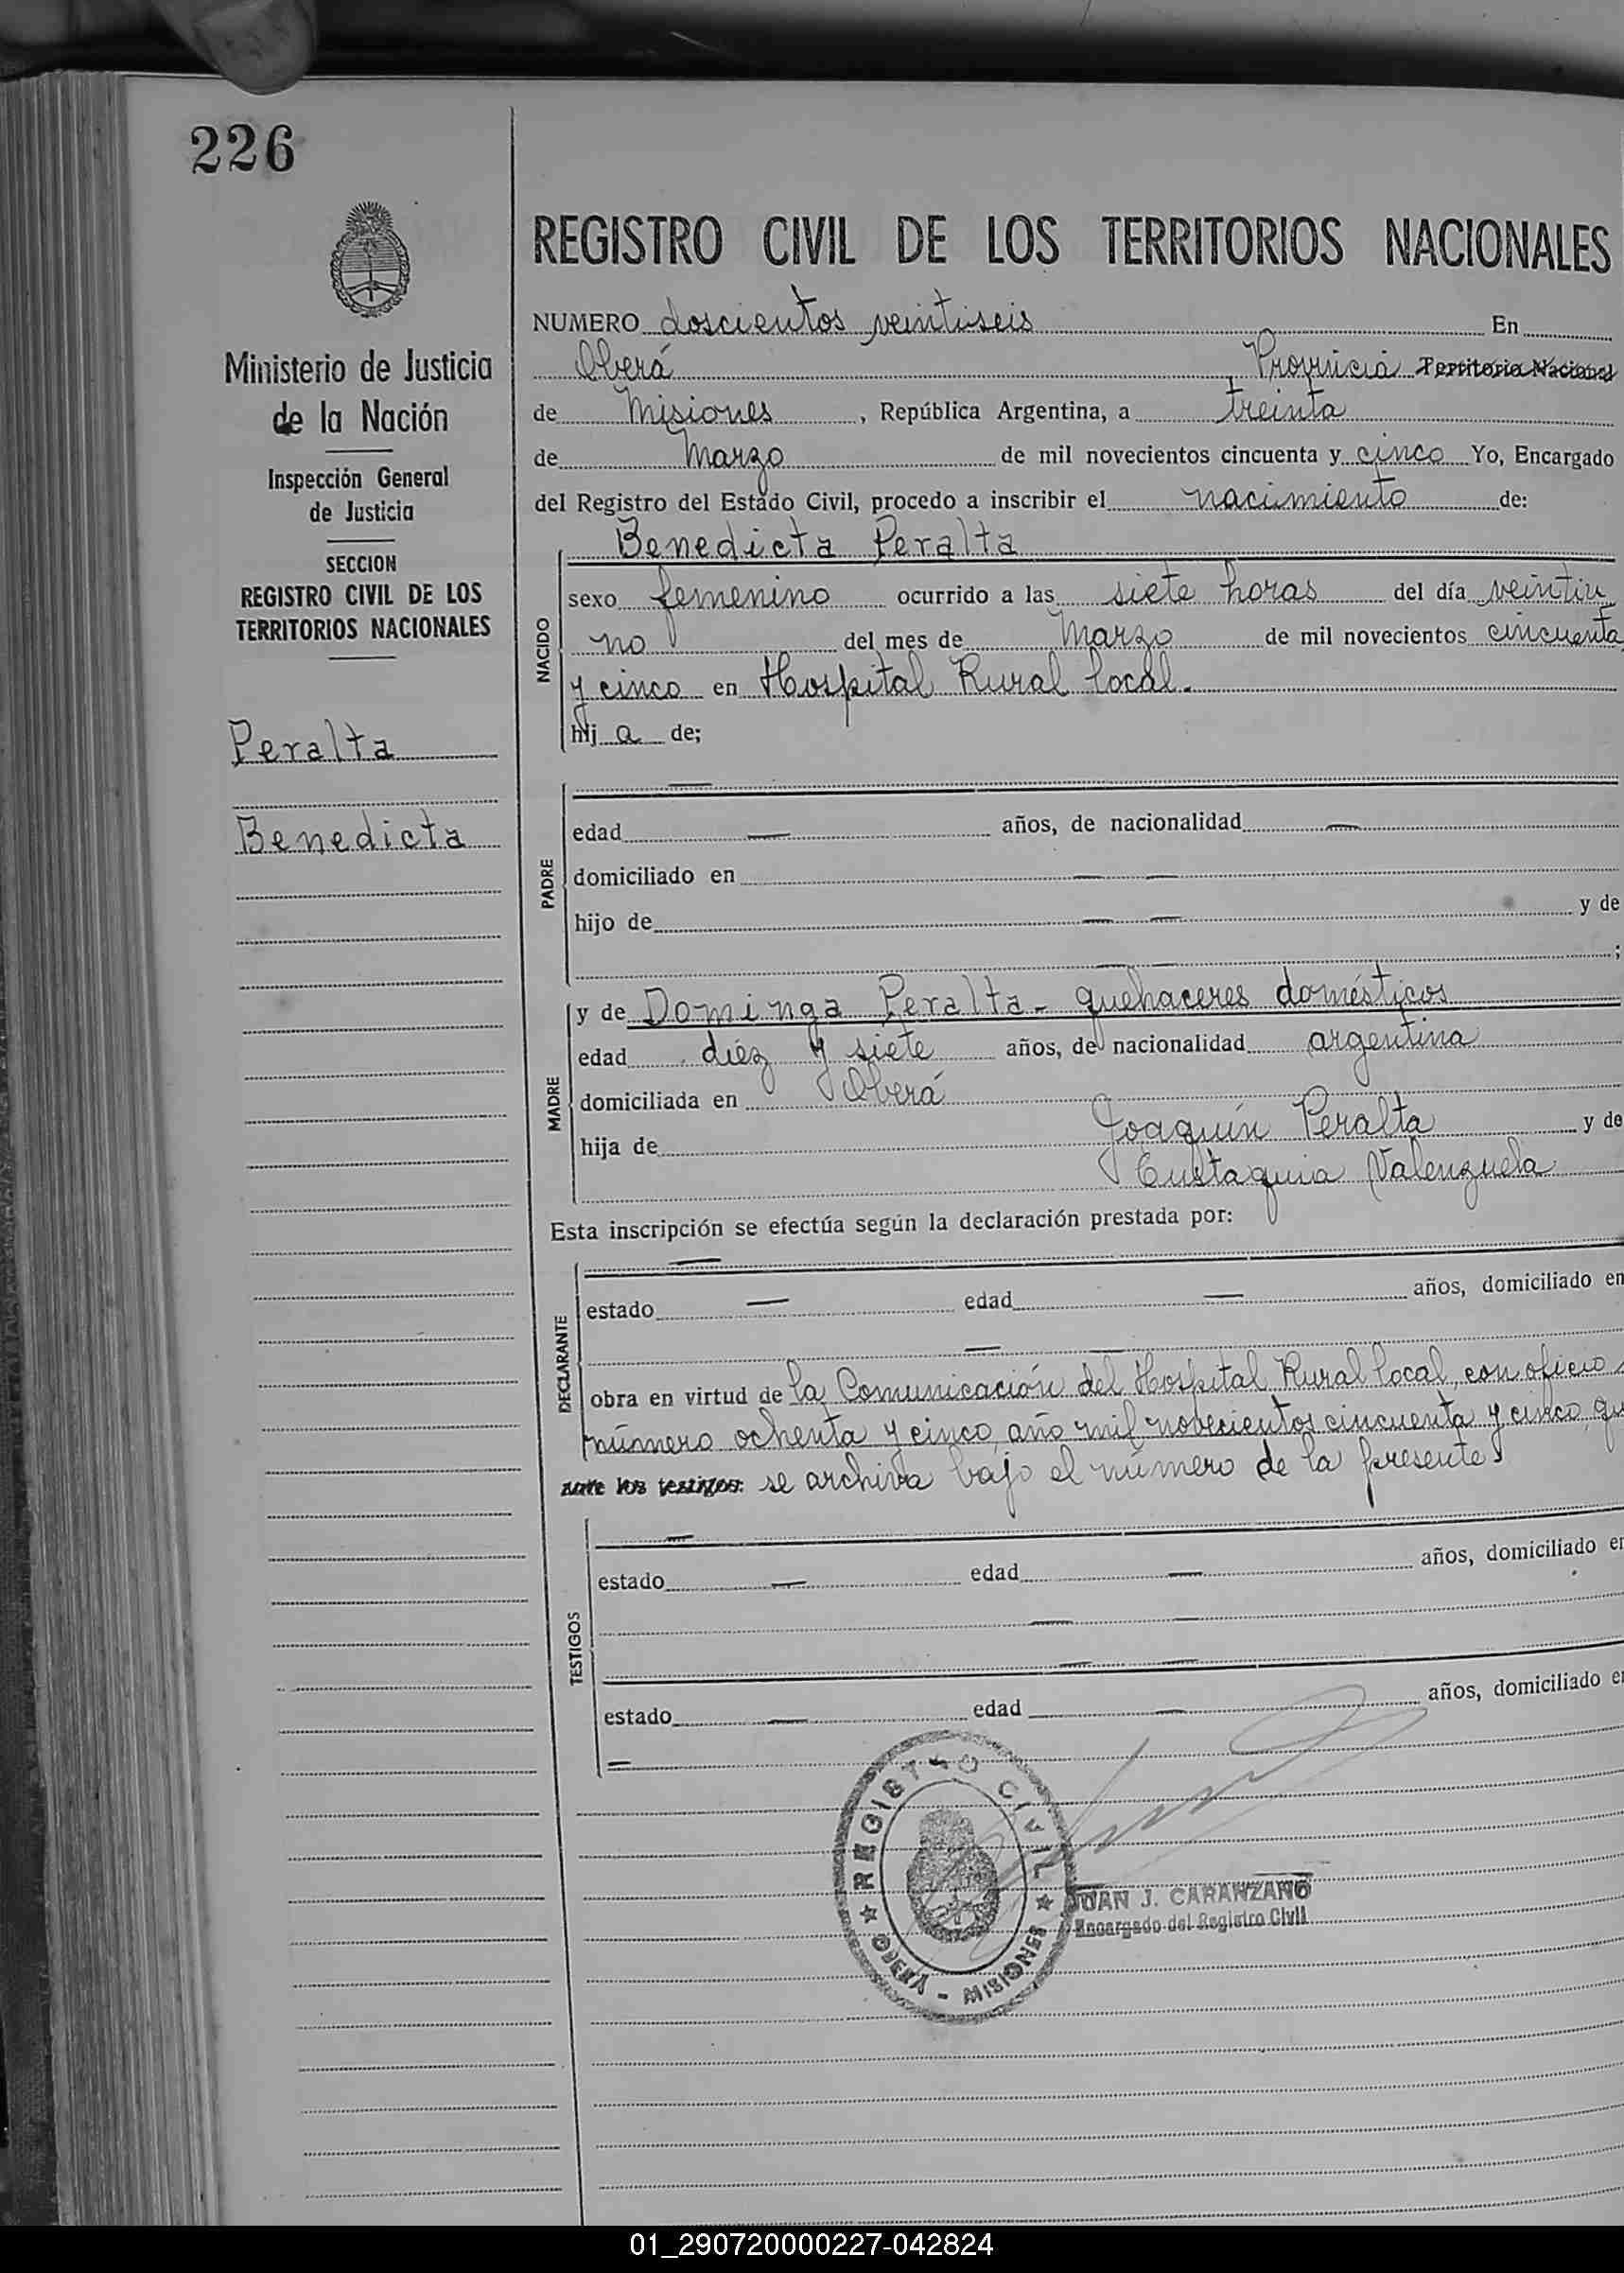 226
Ministerio de Justicia
de la Nación
Inspección General
de Justicia
SECCION
REGISTRO CIVIL DE LOS
TERRITORIOS NACIONALES
Peralta
Benedicta
REGISTRO CIVIL DE LOS TERRITORIOS NACIONALES
NUMERO doscientos veintiseis En
Oberá Provincia Territorio Nacional
de Misiones , República Argentina, a treinta
de Marzo de mil novecientos cincuenta y cinco Yo, Encargado
del Registro del Estado Civil, procedo a inscribir el nacimiento de:
Benedicta Peralta
NACIDO
sexo femenino ocurrido a las siete horas del día veintiu
no del mes de Marzo de mil novecientos cincuenta
y cinco en Hospital Rural local.
hij a de;
PADRE
edad años, de nacionalidad
domiciliado en
hijo de y de
;
MADRE
y de Dominga Peralta - quehaceres domésticos
edad diéz y siete años, de nacionalidad argentina
domiciliada en Oberá
hija de Joaquín Peralta y de
Eustaquia Valenzuela
Esta inscripción se efectúa según la declaración prestada por:
DECLARANTE
estado edad años, domiciliado en
obra en virtud de la Comunicación del Hospital Rural local, con oficio
número ochenta y cinco, año mil novecientos cincuenta y cinco, qu
ante los testigos: se archiva bajo el número de la presente
TESTIGOS
estado edad años, domiciliado en
estado edad años, domiciliado en
REGISTRO CIVIL
OBERÁ - MISIONES
JUAN J. CARANZANO
Encargado del Registro Civil
01_290720000227-042824